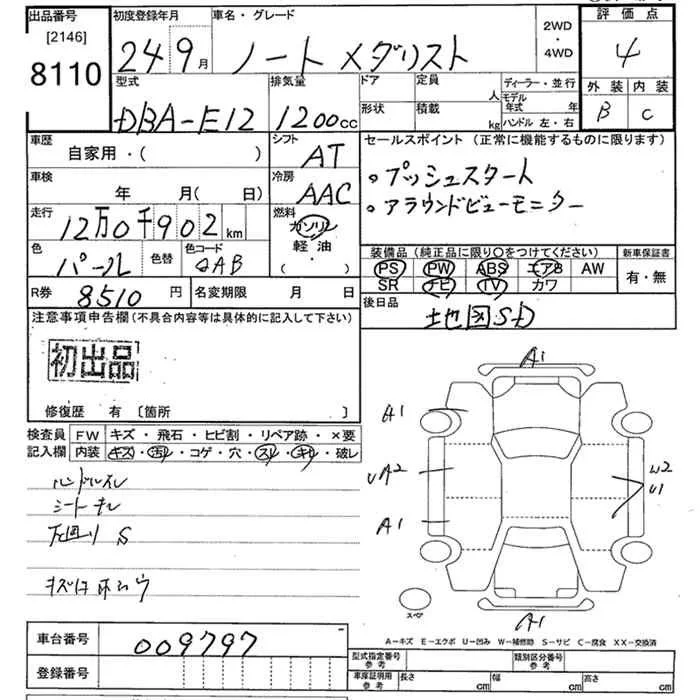 出品番号
[2146]
8110
初度登録年月
24 9月
車名・グレード
ノート メダリスト
2WD
・
4WD
評価点
4
外装 内装
B C
型式
DBA-E12
排気量
1200cc
ドア
形状
定員 人
積載 kg
ディーラー・並行
モデル年式 年
ハンドル 左・右
車歴
自家用・( )
シフト
AT
セールスポイント (正常に機能するものに限ります)
。プッシュスタート
。アラウンドビューモニター
車検
年 月( 日)
冷房
AAC
走行
12万0千902km
燃料
ガソリン
軽油・
( )
色
パール
色替
色コード
QAB
装備品 (純正品に限り〇をつけてください)
PS PW ABS エアB AW
SR ナビ TV カワ
新車保証書
有・無
R券 8510円
名変期限 月 日
後日品
地図SD
注意事項申告欄 (不具合内容等は具体的に記入して下さい)
初出品
修復歴 有 〔箇所 〕
検査員
記入欄
FW キズ・飛石・ヒビ割・リペア跡・×要
内装 キズ・汚レ・コゲ・穴・スレ・キレ・破レ
ハンドルスレ
シートキレ
下回り S
A1
A1
UA2
A1
W2
U1
スペア
A1
A-キズ E-エクボ U-凹み W-補修跡 S-サビ C-腐食 XX-交換済
車台番号
009797
登録番号
型式指定番号
参考
類別区分番号
参考
車庫証明用
参考
長さ cm
幅 cm
高さ cm